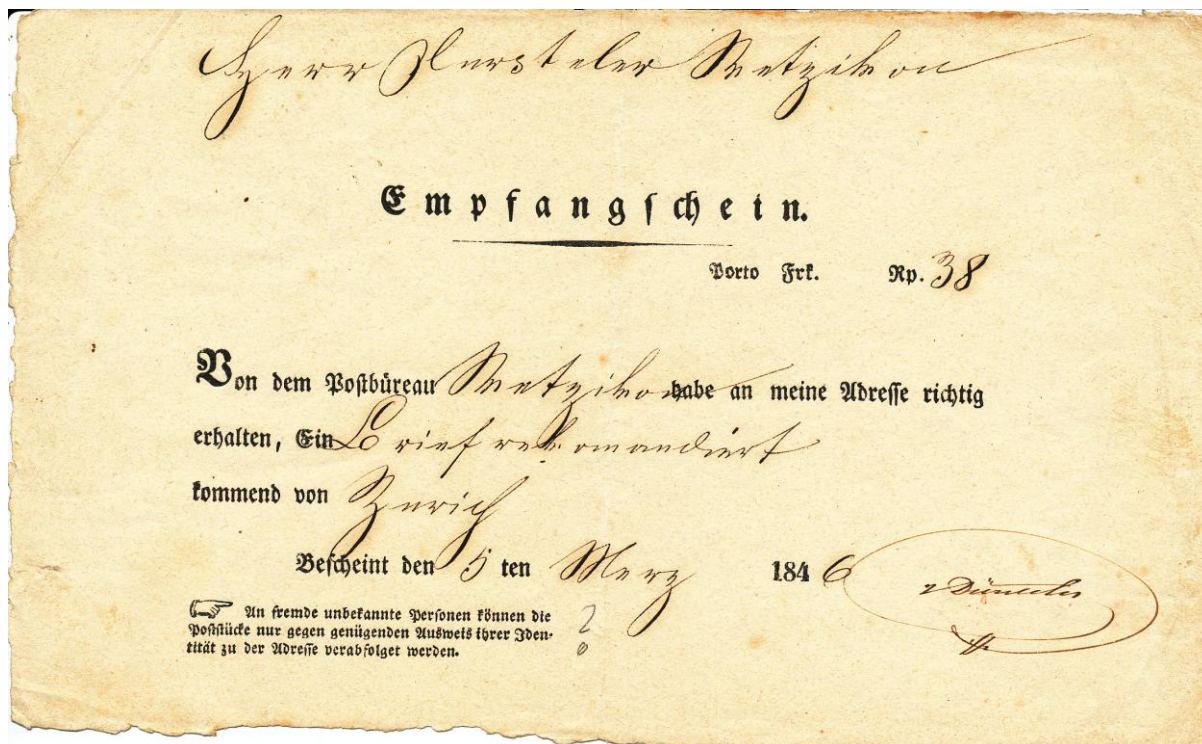 Herr Nersteler Wetzikon
Empfangschein.
Porto Frk. Rp. 38
Von dem Postbüreau Wetzikon habe an meine Adresse richtig
erhalten, Ein Brief rekomandiert
kommend von Zürich
Bescheint den 5 ten Merz 1846
An fremde unbekannte Personen können die
Poststücke nur gegen genügenden Ausweis ihrer Iden-
tität zu der Adresse verabfolget werden.